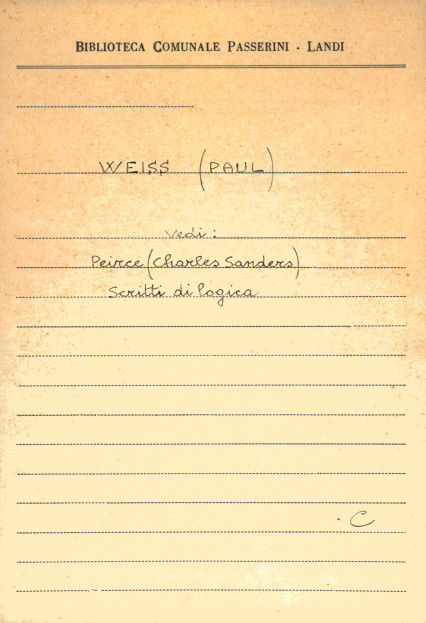 BIBLIOTECA COMUNALE PASSERINI - LANDI
WEISS (PAUL)
vedi:
Peirce (Charles Sanders)
Scritti di logica
. C